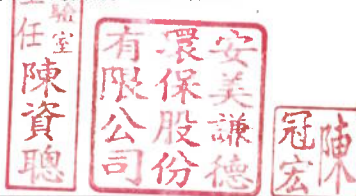 驗室
主任陳資聰
安美謙德
環保股份
有限公司
陳
冠宏